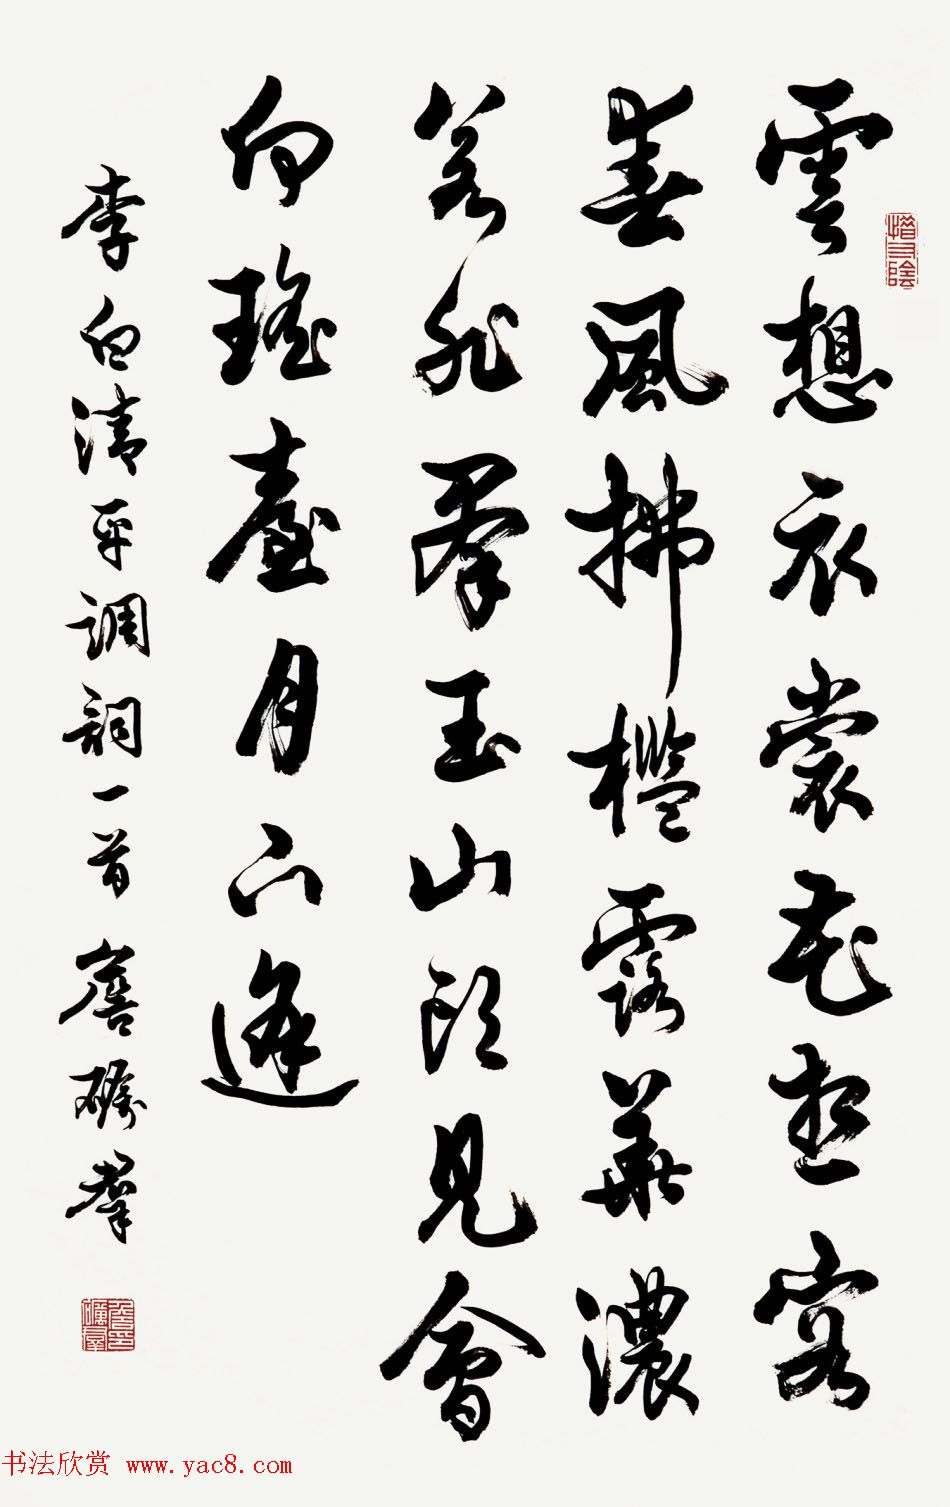 雲想衣裳花想容
春風拂檻露華濃
若非羣玉山頭見會
向瑤臺月下逢
李白清平調詞一首 詹 羣
惜寸陰
书法欣赏 www.yac8.com